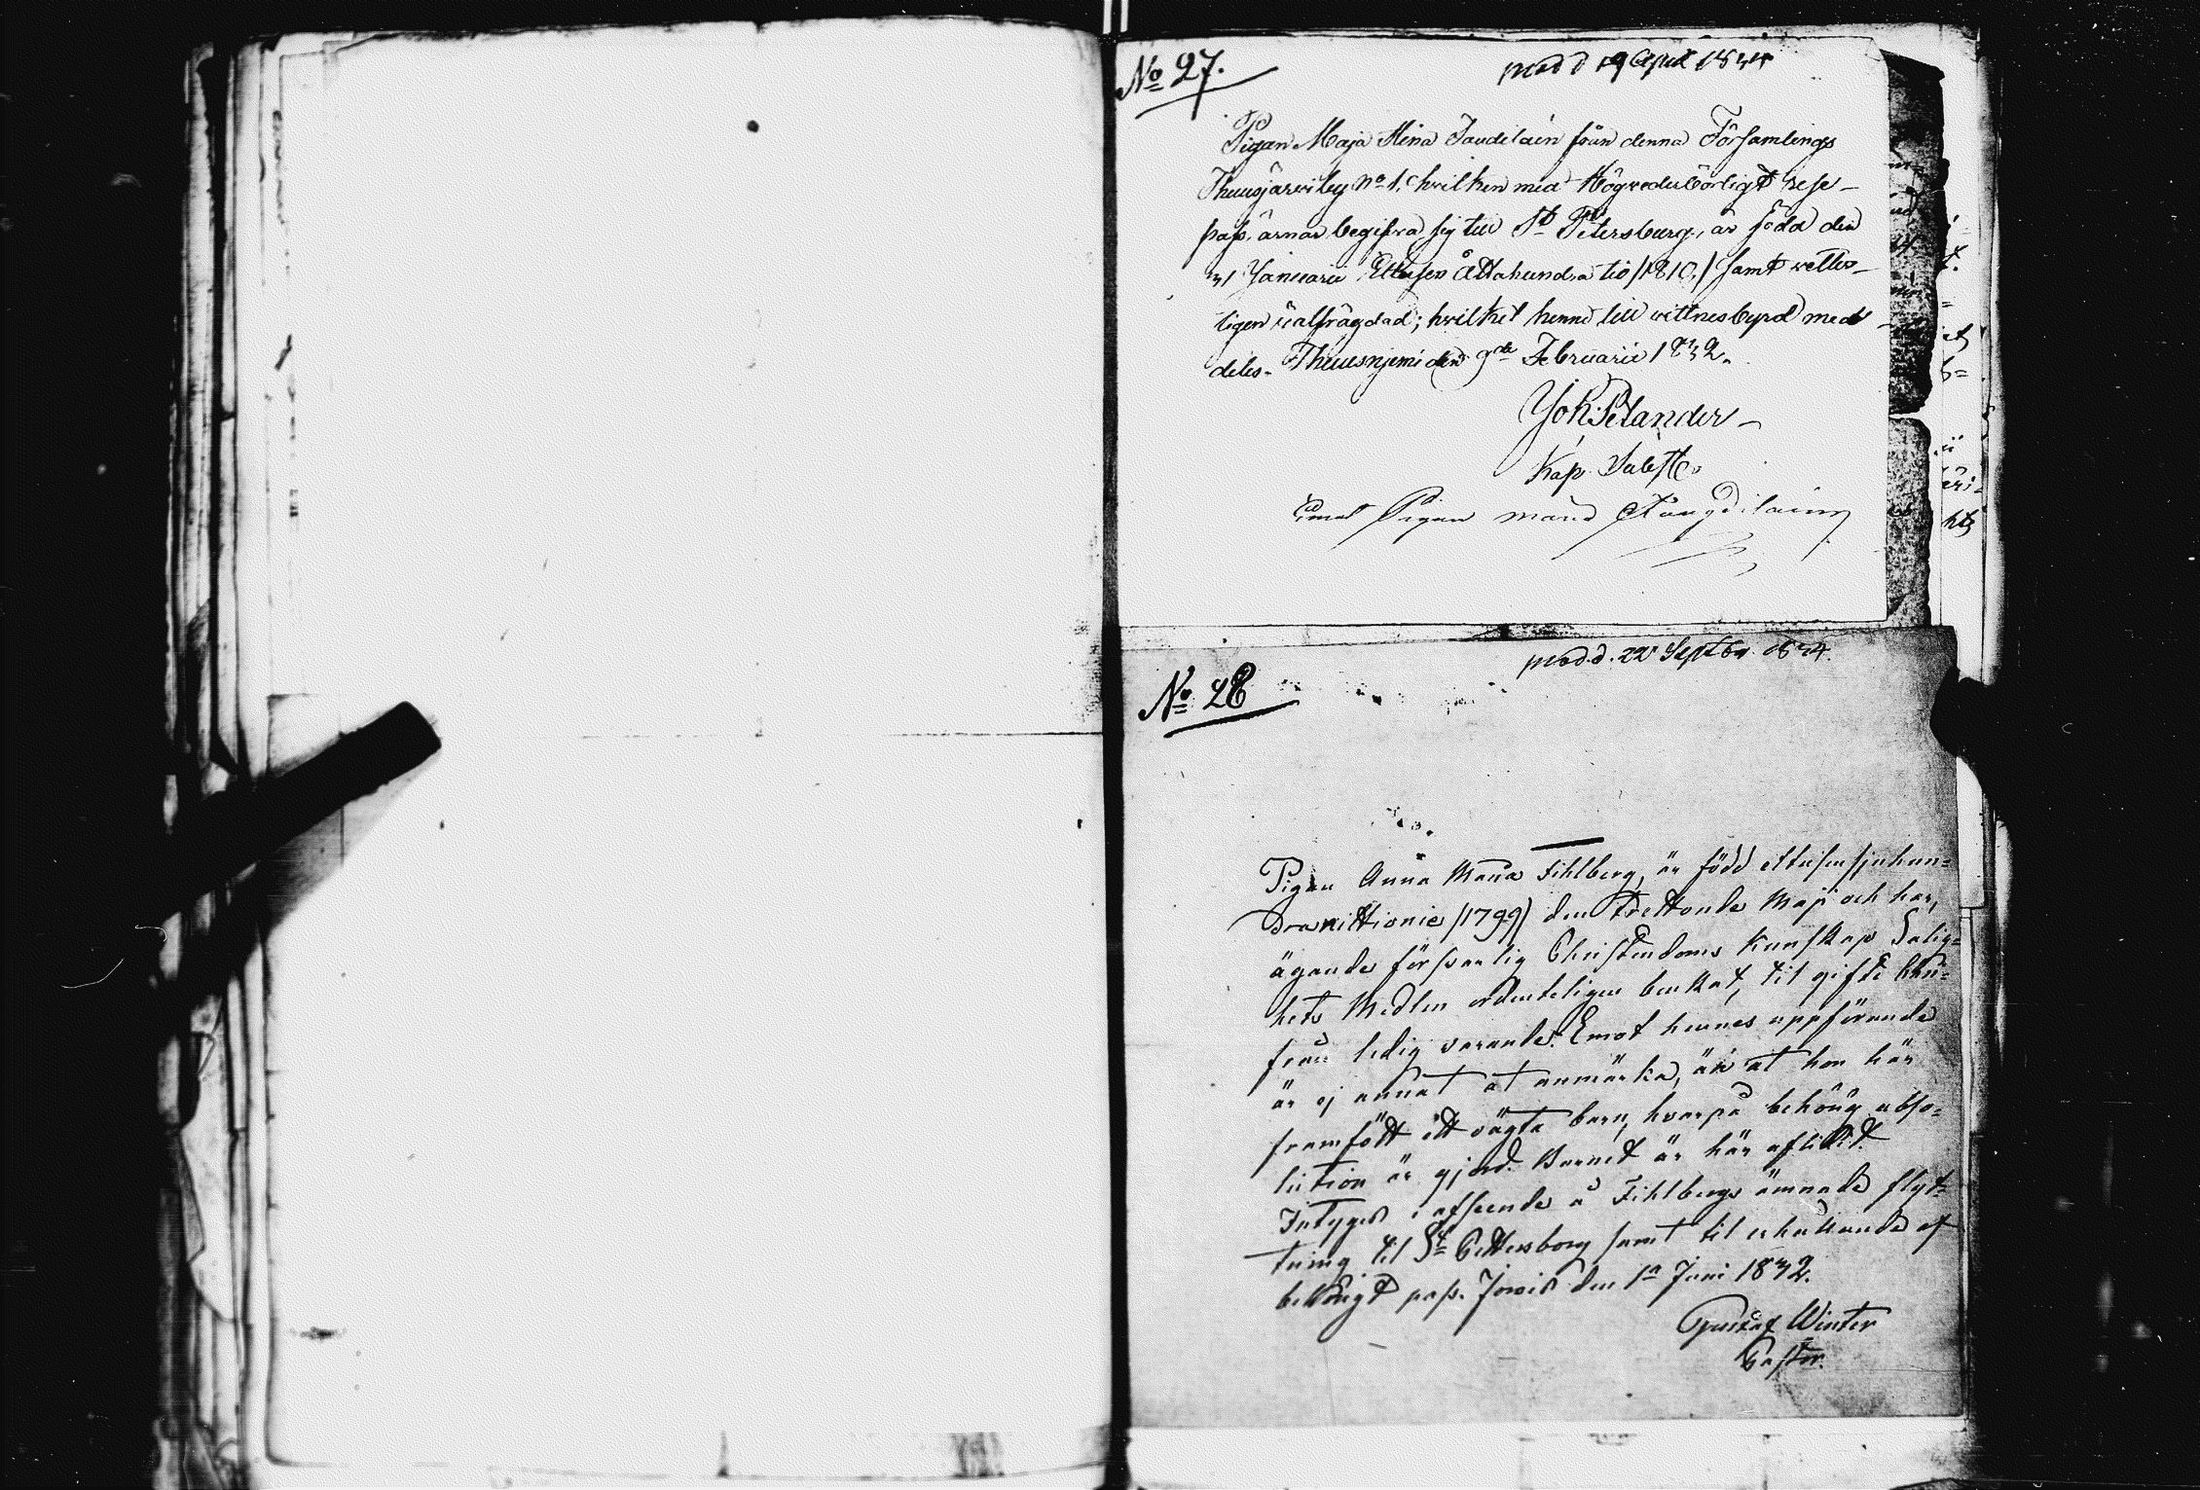 No 27.
prod d 19 April 1834
Pigan Maja Stina Taudilain från denna Församlings
Thuusjärwi by No 1, hvilken med Högvederbörligt rese-
pass ärnar begifva sig till St Petersburg, är född den
31 Januarii Ettusen Åttahundra tio /1810,/ samt vetter-
ligen oalfrägdad; hvilket henne till vittnesbyrd med-
deles. Thuusnjemi den 9de Februarii 1832.
Joh: Pelander
Kap.
Pigan
No 28
prod. d. 22 Septbr. 1834.
Pigan Anna Maria Fihlberg, är född ettusensjuhun=
dranittionie /1799/ den trettonde Maji och har,
ägande försvarlig Christendoms kunskap Salig=
hets Medlen ordenteligen benkat, til gifte
från ledig varande. Emot hennes uppförande
är ej annat at anmärka, än at hon här
framfödt ett oägta barn, hvarpå behörig abso=
lution är gjord. Barnet är här aflidit.
Intygas i afseende å Fihlbergs ämnade flyt=
tning til St Pettersborg samt til erhållande af
behörigt pass. Jorois den 1a Juni 1832.
Gustaf Winter
Pastor.